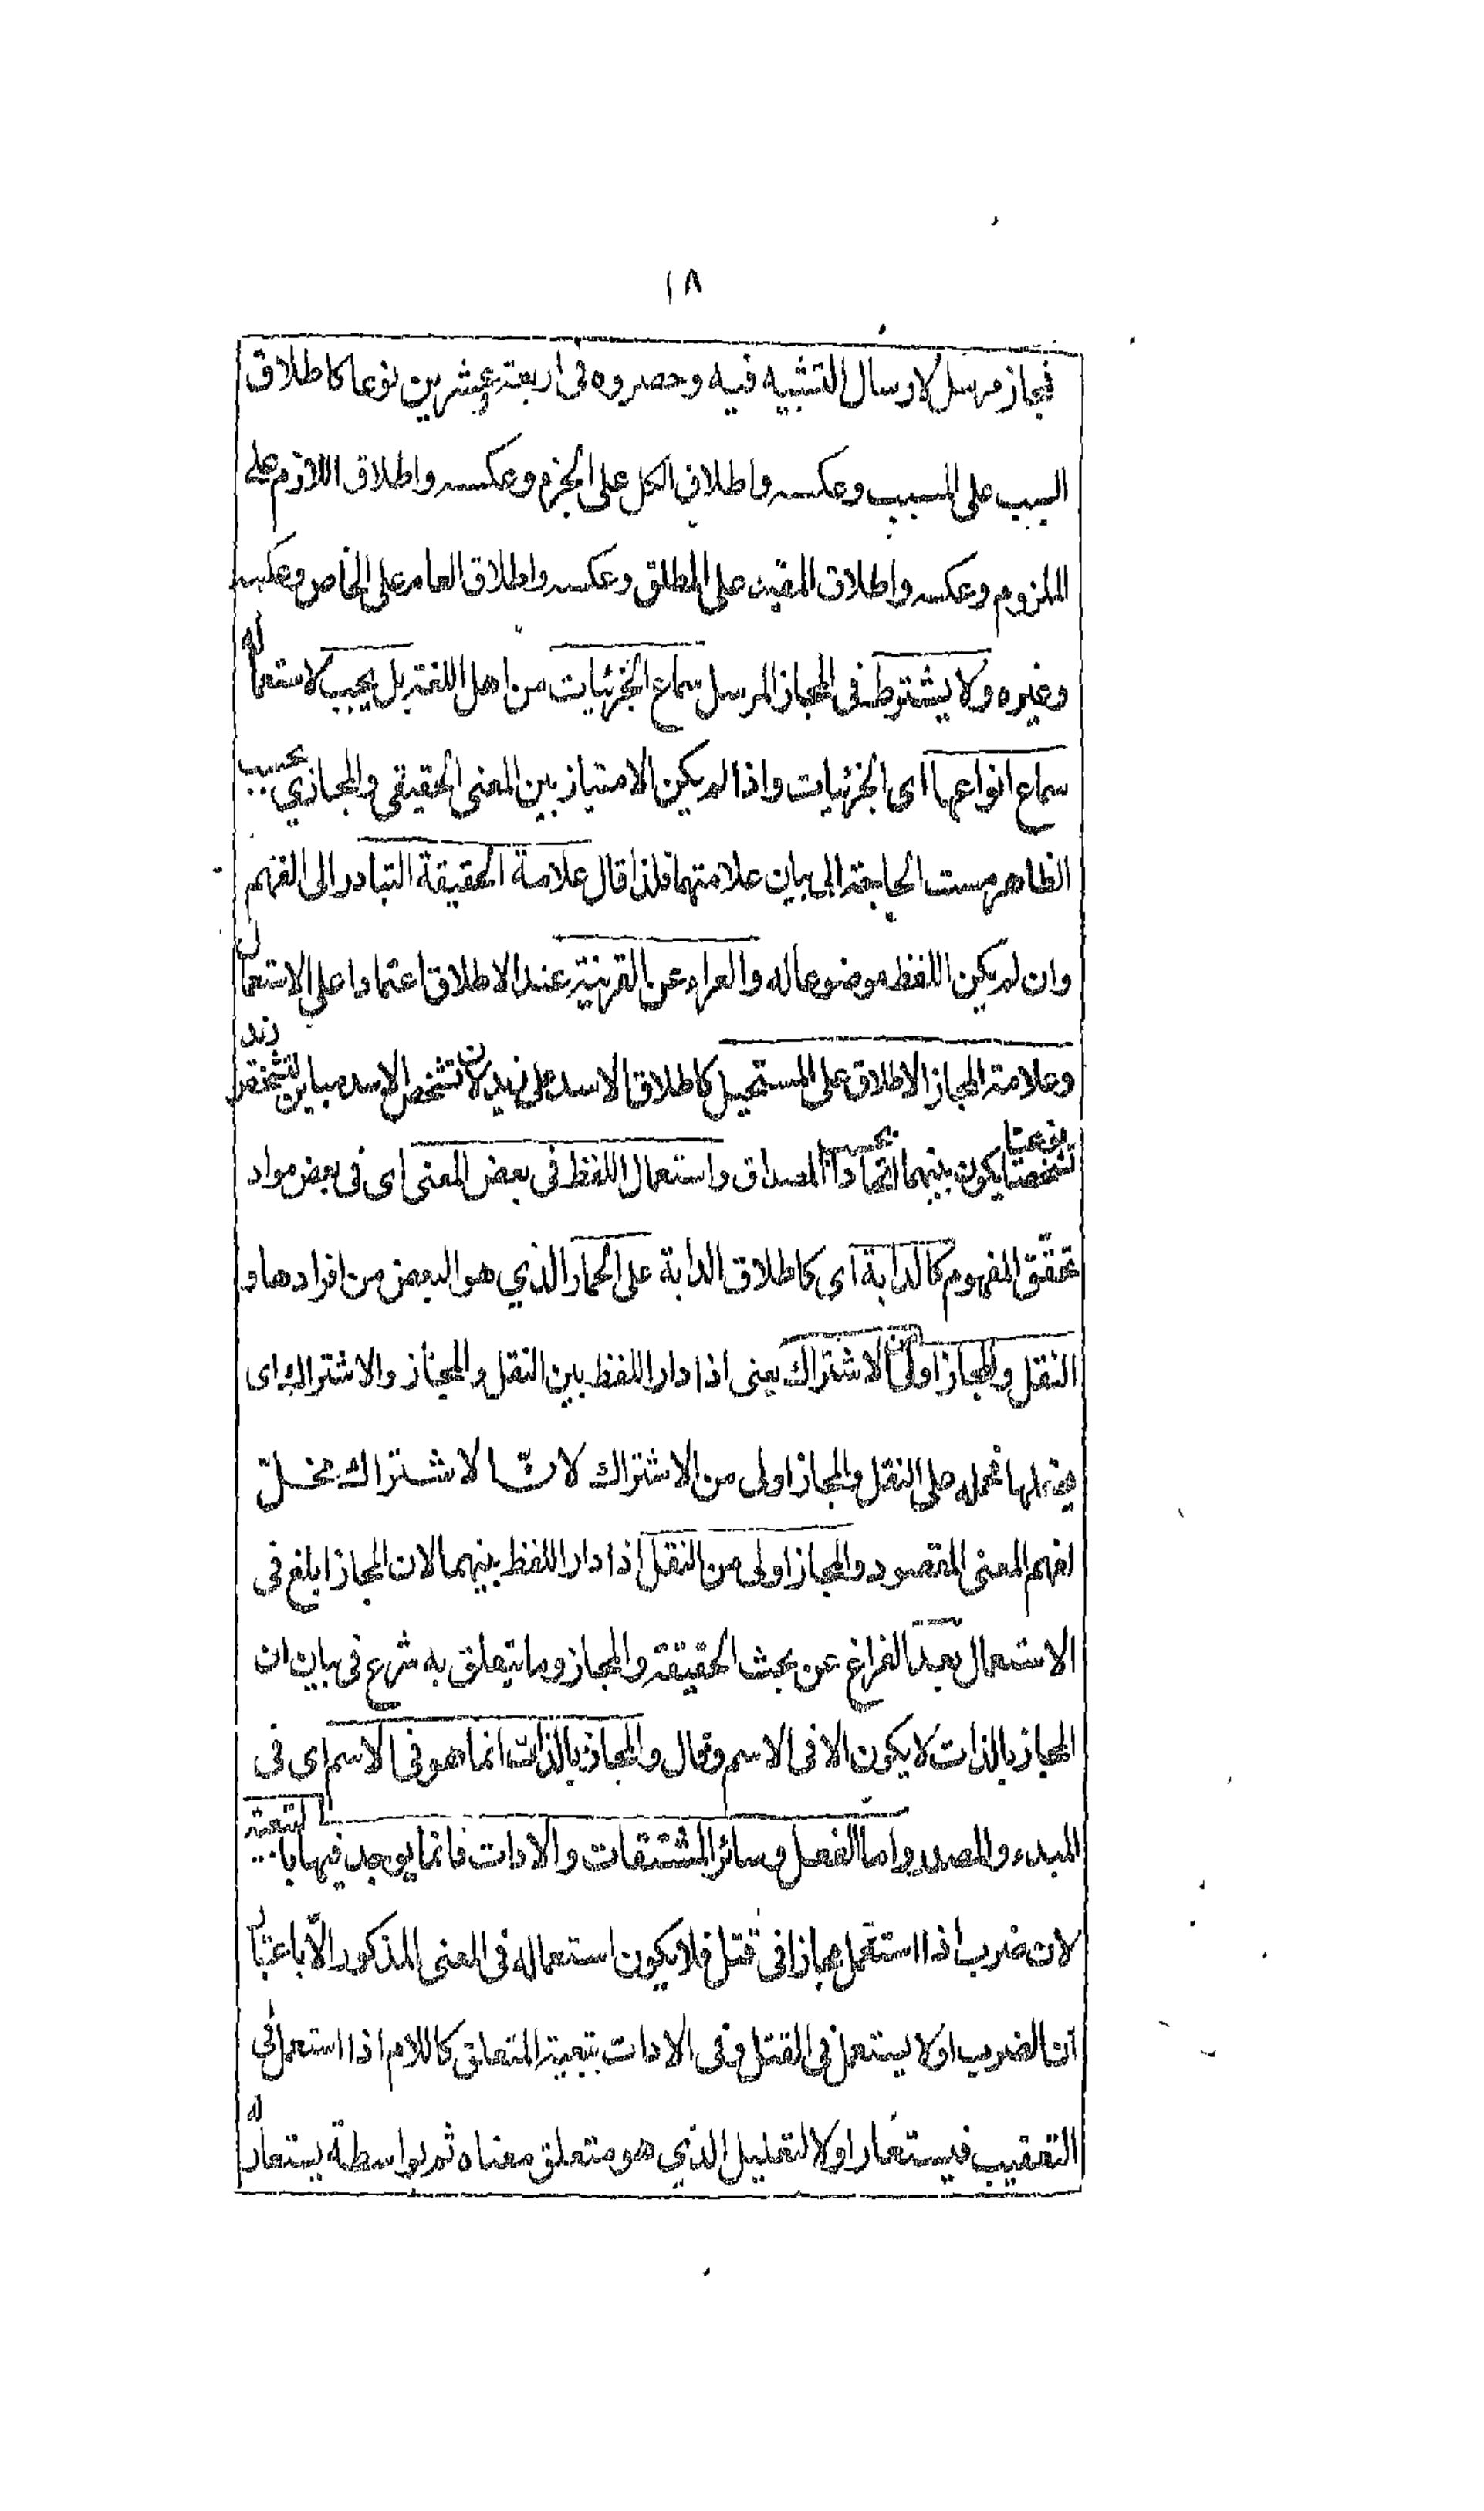 ١٨
فمجاز مرسل لارسال التشبيه فيه وحصروه فى اربعة وعشرين نوعا كاطلاق
السبب على المسبب وعكسه واطلاق الكل على الجزء وعكسه واطلاق اللازم على
الملزوم وعكسه واطلاق المقيد على المطلق وعكسه واطلاق العام على الخاص وعكسه
وغيره ولا يشترط فى المجاز المرسل سماع الجزئيات من اهل اللغة بل يجب لاستعماله
سماع انواعها اى الجزئيات واذا لم يكن الامتياز بين المعنى الحقيقى والمجازي بحسب
الظاهر مست الحاجة الى بيان علامتهما فلذا قال علامة الحقيقة التبادر الى الفهم
وان لم يكن اللفظ موضوعا له والعراء عن القرينة عند الاطلاق اعتمادا على الاستعمال
وعلامة المجاز الاطلاق على المستحيل كاطلاق الاسد على زيد لان تشخص الاسد مباين لتشخص زيد
يكون بينهما اتحادا بحسب المصداق واستعمال اللفظ فى بعض المعنى اى فى بعض مواد
تحقّق المفهوم كالدابة اى كاطلاق الدابة على الحمار الذي هو البعض من افرادها و
النقل والمجاز اولى من الاشتراك يعنى اذا دار اللفظ بين النقل والمجاز والاشتراك اى
فحمله على النقل والمجاز اولى من الاشتراك لانّ الاشتراك مخلّ
لفهم المعنى المقصود والمجاز اولى من النقل اذا دار اللفظ بينهما لان المجاز ابلغ فى
الاستعمال بعد الفراغ عن بحث الحقيقة والمجاز وما يتعلق به شرع فى بيان ان
المجاز بالذات لا يكون الا فى الاسم وقال والمجاز بالذات انما هو فى الاسم اى فى
المبدء والمصدر واما الفعل وسائر المشتقات والادات فانما يوجد فيها بالتبعية
لان ضرب اذا استعمل مجازا فى قتل فلا يكون استعماله فى المعنى المذكور الّا باعتبار
ان الضرب اولا يستعمل فى القتل وفى الادات بتبعية المتعلق كاللام اذا استعمل فى
التعقيب فيستعار اولا لتعليل الذي هو متعلق معناه ثم بواسطة يستعار له